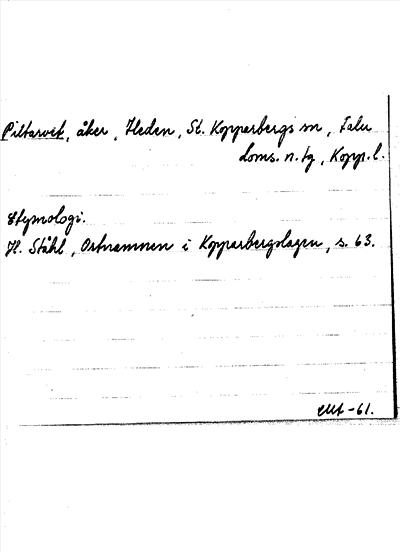 Piltarvet, åker, Heden, St. Kopparbergs sn, Falu
Doms. n. tg, Kopp. l.
Etymologi.
H. Ståhl, Ortnamnen i Kopparbergslagen, s. 63.
-61.